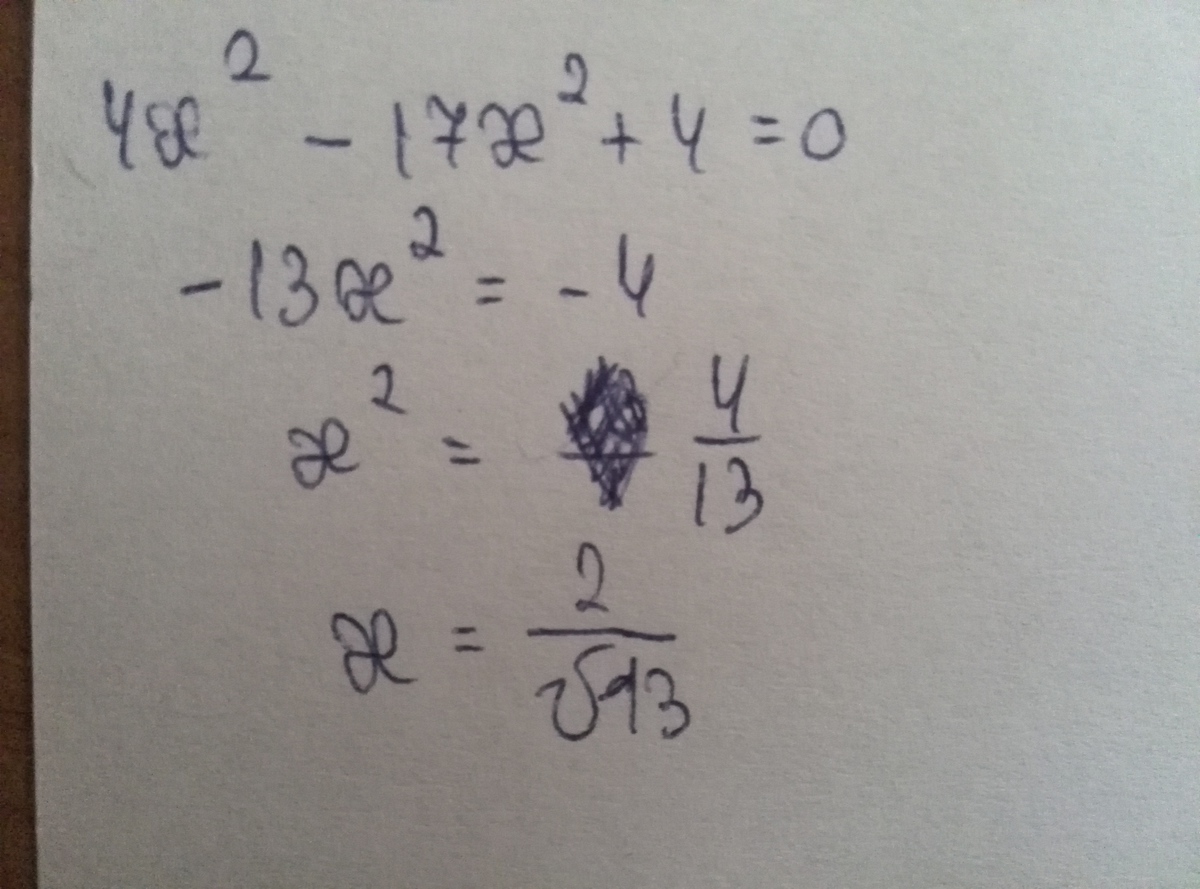 4x² - 17x² + 4 = 0
-13x² = -4
x² = 4/13
x = 2/√13